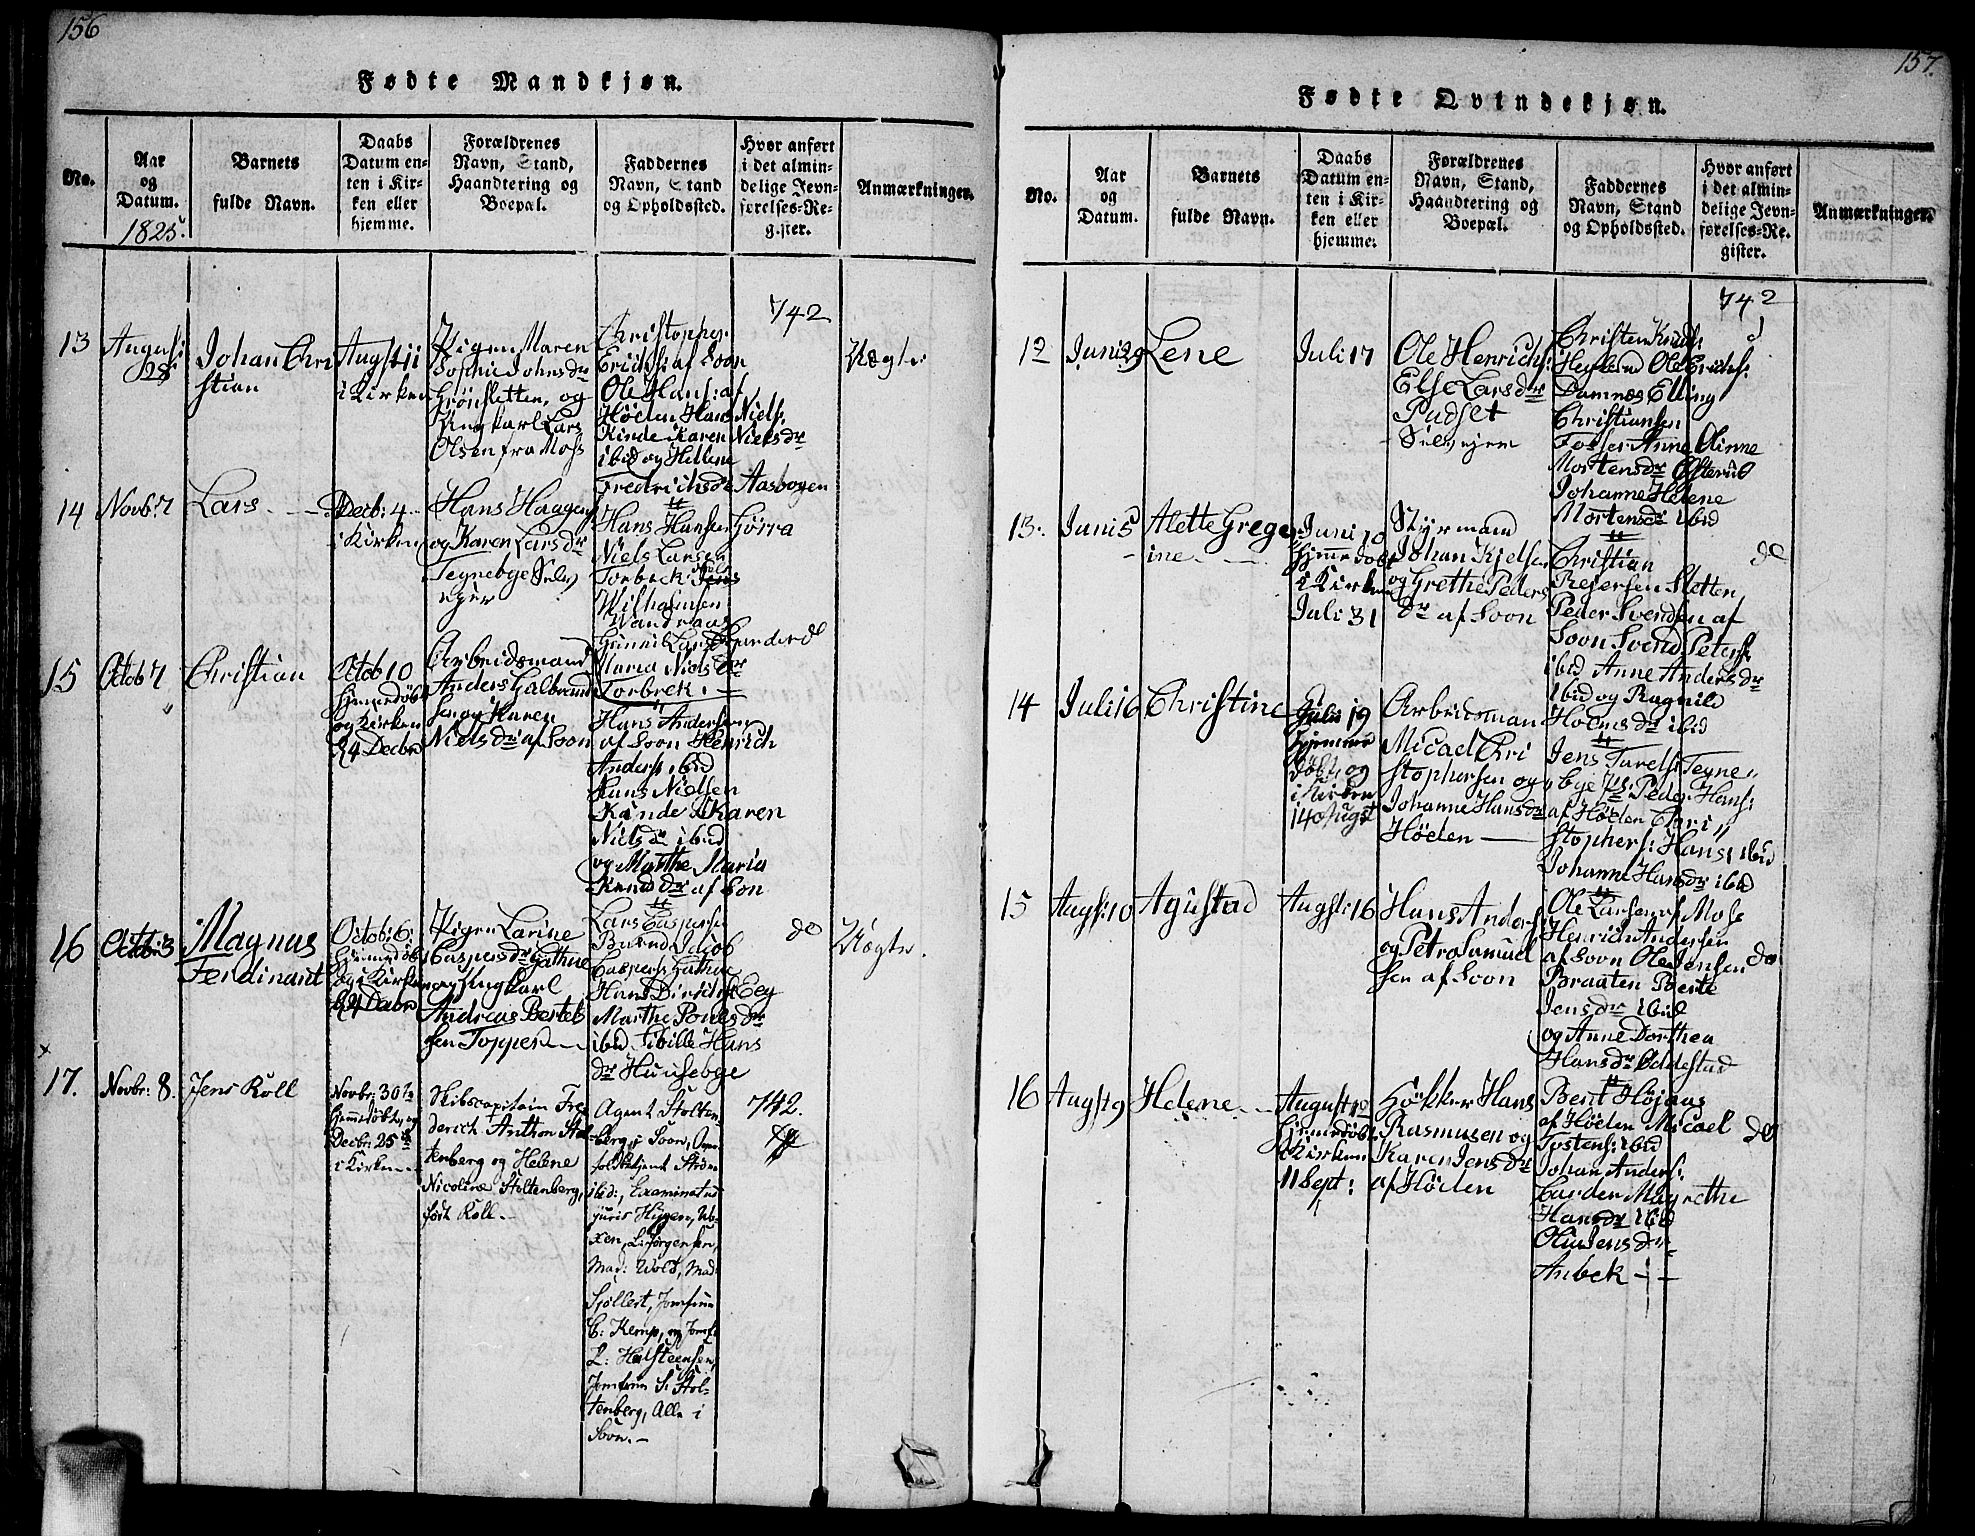 156
Fødte Mandkjøn.
No.
Aar
og
Datum.
1825.
Barnets
fulde Navn.
Daabs
Datum en-
ten i Kir-
ken eller
hjemme.
Forældrenes
Navn, Stand,
Haandtering og
Boepæl.
Faddernes
Navn, Stand
og Opholdssted.
Hvor anført
i det almin-
delige Jevn-
førelses-Re-
gister.
Anmærkninger.
13
August
28
Johan Chri
stian
Augst 11
i Kirken
Pigen Maren
Sophie Johnsdr
Grønsletten, og
Ungkarl Lars
Olsen fra Moss
Christopher
Erichs: af Soon
Ole Hans: af
Höden Hans Niels:
Kinde Karen Nielsdr
ibid og Hellene
Fredrichsdr Aasbogen
742
Uægte
14
Novb: 7
Lars
Decb: 4
i Kirken
Hans Haagens
og Karen Larsdr
Tegnebye Selv
eyer
Hans Hansen Gjørra
Niels Larsen
Torbek
Wilhelmsen
Maria Nielsdr
Torbrek.
15
Octob 7
Christian
Octob 10
hjemedöbt
og i Kirken
24 Decbr
Arbeidsmand
Anders Galbrand
sen og Karen
Nielsdr af Soon
Hans Andersen
af Soon Henrich
Anders: ibid
Hans Nielsen
Kinde Karen
Nielsdr ibid
og Marthe Maria
Knudsdr af Son
16
Octb: 3
Magnus
Ferdinant
Octob: 6
hjemedöbt
og i Kirken
24 Decbr
Pigen Larine
Caspersdr Gathue
og Ungkarl
Andreas Bertel
sen Topper
Lars Caspersen
Jacob
Caspers: Gathue
Hans Dirichs: Eeg
Marthe Poulsdr
ibid Sibille Hans
dr Huusebye
do
Uægte.
17.
Novbr: 8.
Jens Roll
Novbr: 30te
hjemedøbt, og
Decbr: 25de
i Kirken
Skibscapitain Fre
derich Anthon Stol
tenberg og Helene
Nicoline Stoltenberg,
født Roll.
Agent Stolten
berg i Soon,
Strøm
ibid:, Examinatus
juris Hygen,
L: Jørgensen,
Mad: Wold, Mad:
Sjöllert, Jomfrue
C: Kemp, og Jomf:
L: Halsteensen,
Jomfrue S: Stol-
tenberg, Alle i
Soon.
742.
157.
Fødte Qvindekjøn.
No.
Aar
og
Datum.
Barnets
fulde Navn.
Daabs
Datum en-
ten i Kir-
ken eller
hjemme.
Forældrenes
Navn, Stand,
Haandtering og
Boepæl.
Faddernes
Navn, Stand
og Opholdssted.
Hvor anført
i det almin-
delige Jevn-
førelses-Re-
gister.
Anmærkninger.
12
Juni 29
Lene
Juli 17
Ole Henrichs:
Else Larsdr
Pudset
Selveyer
Christen Knuds:
Ole Erichs:
Damnæs Elling
Christiansen
Fosser Anne Olinne
Mortensdr Østerud
Johanne Helene
Mortensdr ibid
742
13.
Juni 5
Alette Grege
ine
Juni 10
hjemedöbt
i Kirken
Juli 31
Styrmand
Johan Kjelsen
og Grethe Peders
dr af Soon
Christian
Rejersen Sletten
Peder Svendsen af
Soon Svend Peters:
ibid Anne Andersdr
ibid og Ragnild
Holmsdr ibid
do
14
Juli 16
Christine
Juli 19
hjemme
döbt og
i Kirken
14 Augst
Arbeidsman
Micael Chri
stophersen og
Johanne Hansdr
Höden
Jens Turels: Tegne
bye Peder Hans:
af Höden Chri
stophers: Hans: ibid
Johanne Hansdr ibid
15
Augst: 10
Agustad
Augst: 16
Hans Anders:
og Petra Samuel
sen af Soon
Ole Larsen af Mose
Henrich Andersen
af Soon Ole Jensen
Braaten Berte
Jensdr ibid
og Anne Dorthea
Hansdr Oddestad
do
16
Augst 9
Helene
August 12
hjemedöbt
i Kirken
11 Sept:
Hökker Hans
Rasmusen og
Karen Jensdr
af Höden
Bent Höjaas
af Höden Micael
Tostens: ibid
Johan Anders:
Garden Magrethe
Hansdr ibid
Olia Jensdr
Anbek
do